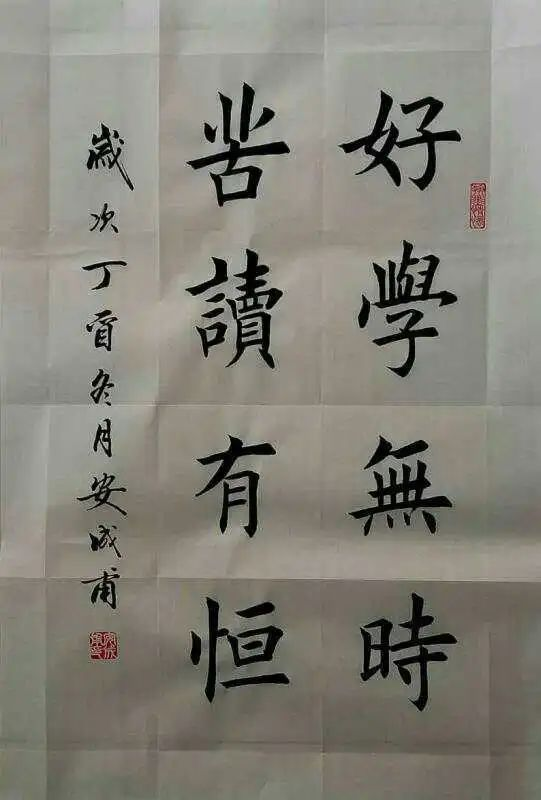 好學無時
苦讀有恒
歲次丁酉冬月安成甫